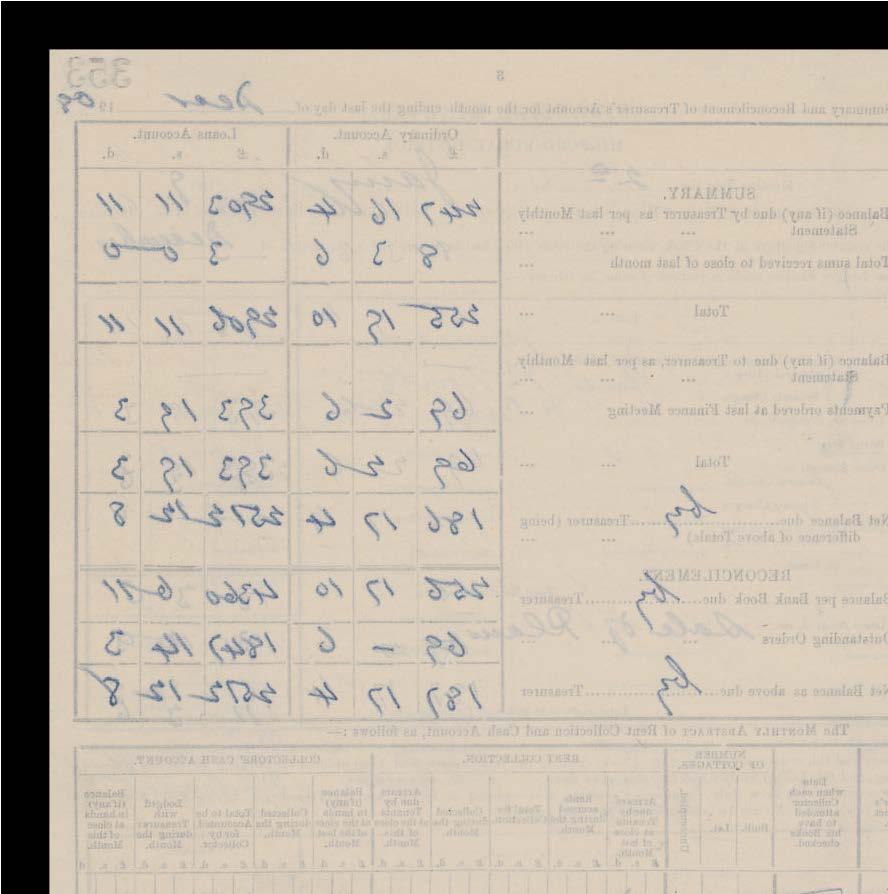 353
3
Summary and Reconcilement of Treasurer's Account for the month ending the last day of Decr 1908
Ordinary Account. Loans Account.
£ s. d. £ s. d.
SUMMARY.
Balance (if any) due by Treasurer as per last Monthly
Statement ... ... ... 247 16 4 2903 11 11
Total sums received to close of last month ... 8 3 6 3 0 0
Total ... ... 255 19 10 2906 11 11
Balance (if any) due to Treasurer, as per last Monthly
Statement ... ... ...
Payments ordered at last Finance Meeting ... 69 2 6 393 19 3
Total ... ... 69 2 6 393 19 3
Net Balance due by Treasurer (being
difference of above Totals) ... ... 186 17 4 2512 12 8
RECONCILEMENT.
Balance per Bank Book due by Treasurer 256 17 10 4360 6 11
Outstanding Orders ... ... ... 69 – 6 1847 14 3
Net Balance as above due by Treasurer 187 17 4 2512 12 8
The MONTHLY ABSTRACT of Rent Collection and Cash Account, as follows :—
NUMBER OF COTTAGES. RENT COLLECTION. COLLECTORS' CASH ACCOUNT.
Date when each Collector attended to have his Books checked.
Built.
Let.
Unoccupied.
Arrears due by Tenants at close of last Month.
Rents accrued during the Month.
Total for Collection.
Collected during the Month.
Arrears due by Tenants at close of this Month.
Balance (if any) in hands at close of the last Month.
Collected during the Month.
Total to be Accounted for by Collector.
Lodged with Treasurer during the Month.
Balance (if any) in hands at close of this Month.
£ s. d. £ s. d. £ s. d. £ s. d. £ s. d. £ s. d. £ s. d. £ s. d. £ s. d. £ s. d.